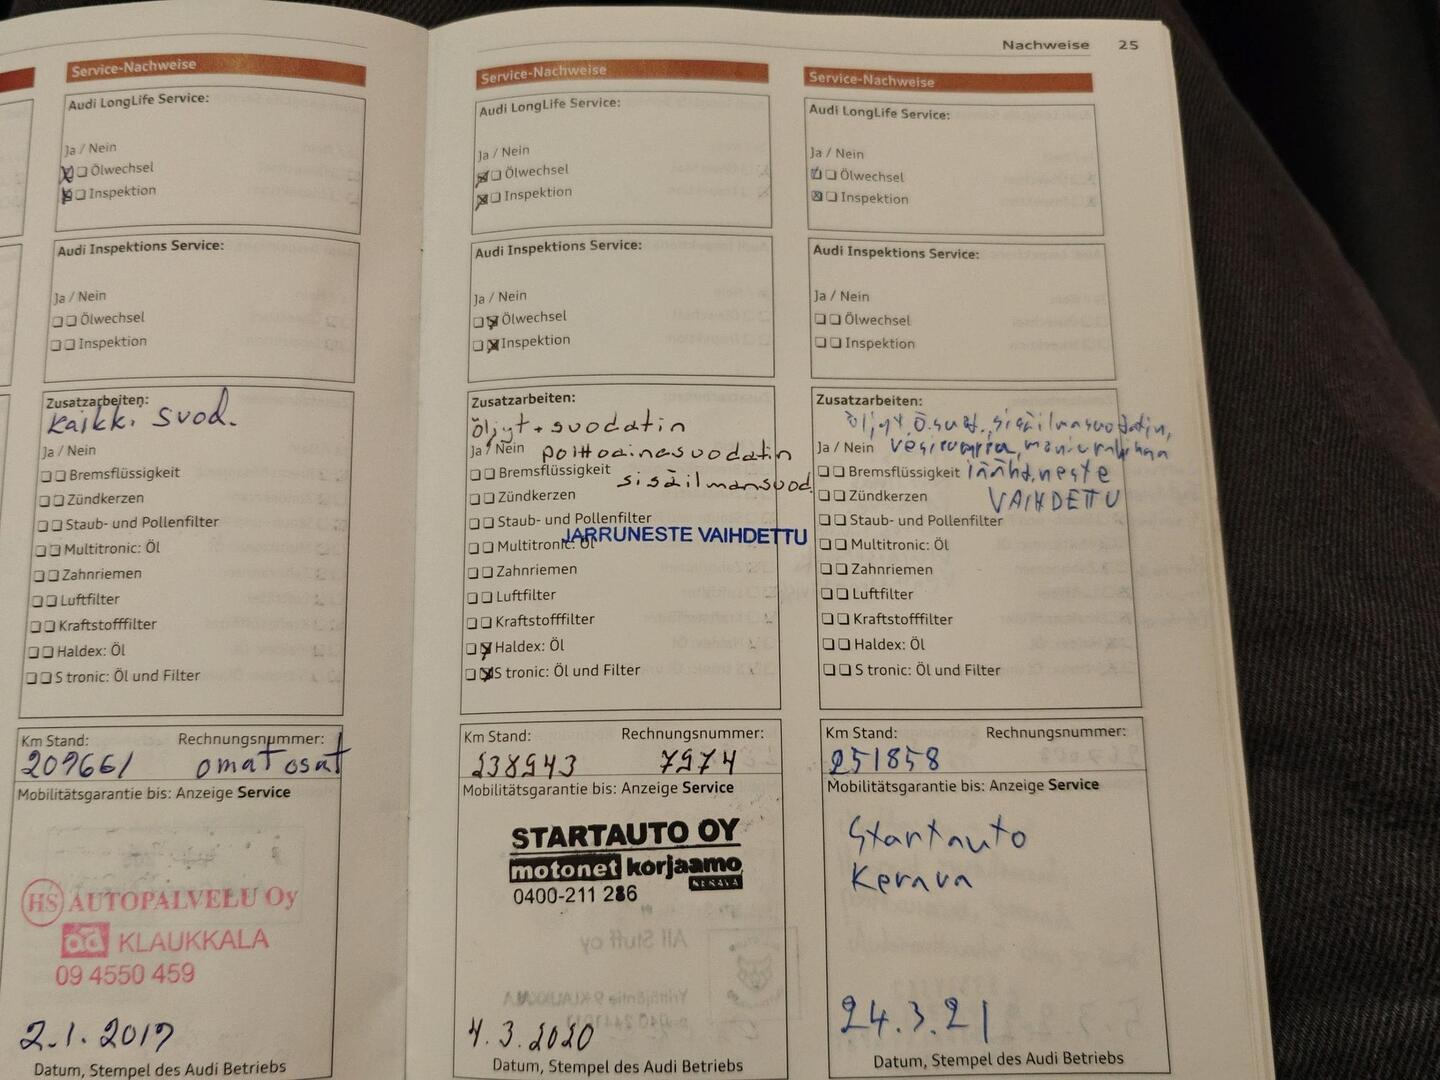 Nachweise 25
Service-Nachweise
Audi LongLife Service:
Ja / Nein
Ölwechsel
Inspektion
Audi Inspektions Service:
Ja / Nein
Ölwechsel
Inspektion
Zusatzarbeiten:
kaikk. suod.
Ja / Nein
Bremsflüssigkeit
Zündkerzen
Staub- und Pollenfilter
Multitronic: Öl
Zahnriemen
Luftfilter
Kraftstofffilter
Haldex: Öl
S tronic: Öl und Filter
Km Stand: Rechnungsnummer:
209661 omat osat
Mobilitätsgarantie bis: Anzeige Service
HS AUTOPALVELU Oy
ad KLAUKKALA
09 4550 459
2.1.2019
Datum, Stempel des Audi Betriebs
Service-Nachweise
Audi LongLife Service:
Ja / Nein
Ölwechsel
Inspektion
Audi Inspektions Service:
Ja / Nein
Ölwechsel
Inspektion
Zusatzarbeiten:
öljyt + suodatin
Ja / Nein polttoainesuodatin
Bremsflüssigkeit
sisäilmansuod.
Zündkerzen
Staub- und Pollenfilter
JARRUNESTE VAIHDETTU
Multitronic: Öl
Zahnriemen
Luftfilter
Kraftstofffilter
Haldex: Öl
S tronic: Öl und Filter
Km Stand: Rechnungsnummer:
238943 7974
Mobilitätsgarantie bis: Anzeige Service
STARTAUTO OY
motonet korjaamo
KERAVA
0400-211 286
4.3.2020
Datum, Stempel des Audi Betriebs
Service-Nachweise
Audi LongLife Service:
Ja / Nein
Ölwechsel
Inspektion
Audi Inspektions Service:
Ja / Nein
Ölwechsel
Inspektion
Zusatzarbeiten:
öljyt, ö.suod., sisäilmasuodatin,
Ja / Nein vesipumppu, moniurahihna
Bremsflüssigkeit jäähd.neste
Zündkerzen VAIHDETTU
Staub- und Pollenfilter
Multitronic: Öl
Zahnriemen
Luftfilter
Kraftstofffilter
Haldex: Öl
S tronic: Öl und Filter
Km Stand: Rechnungsnummer:
251858
Mobilitätsgarantie bis: Anzeige Service
Startauto
Kerava
24.3.21
Datum, Stempel des Audi Betriebs